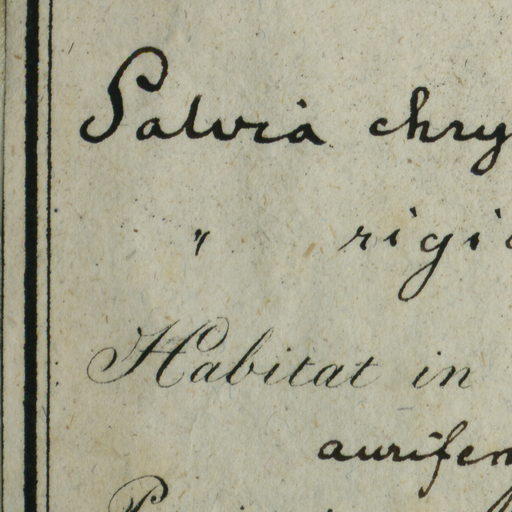 Salvia chry
" rigi
Habitat in
aurifem